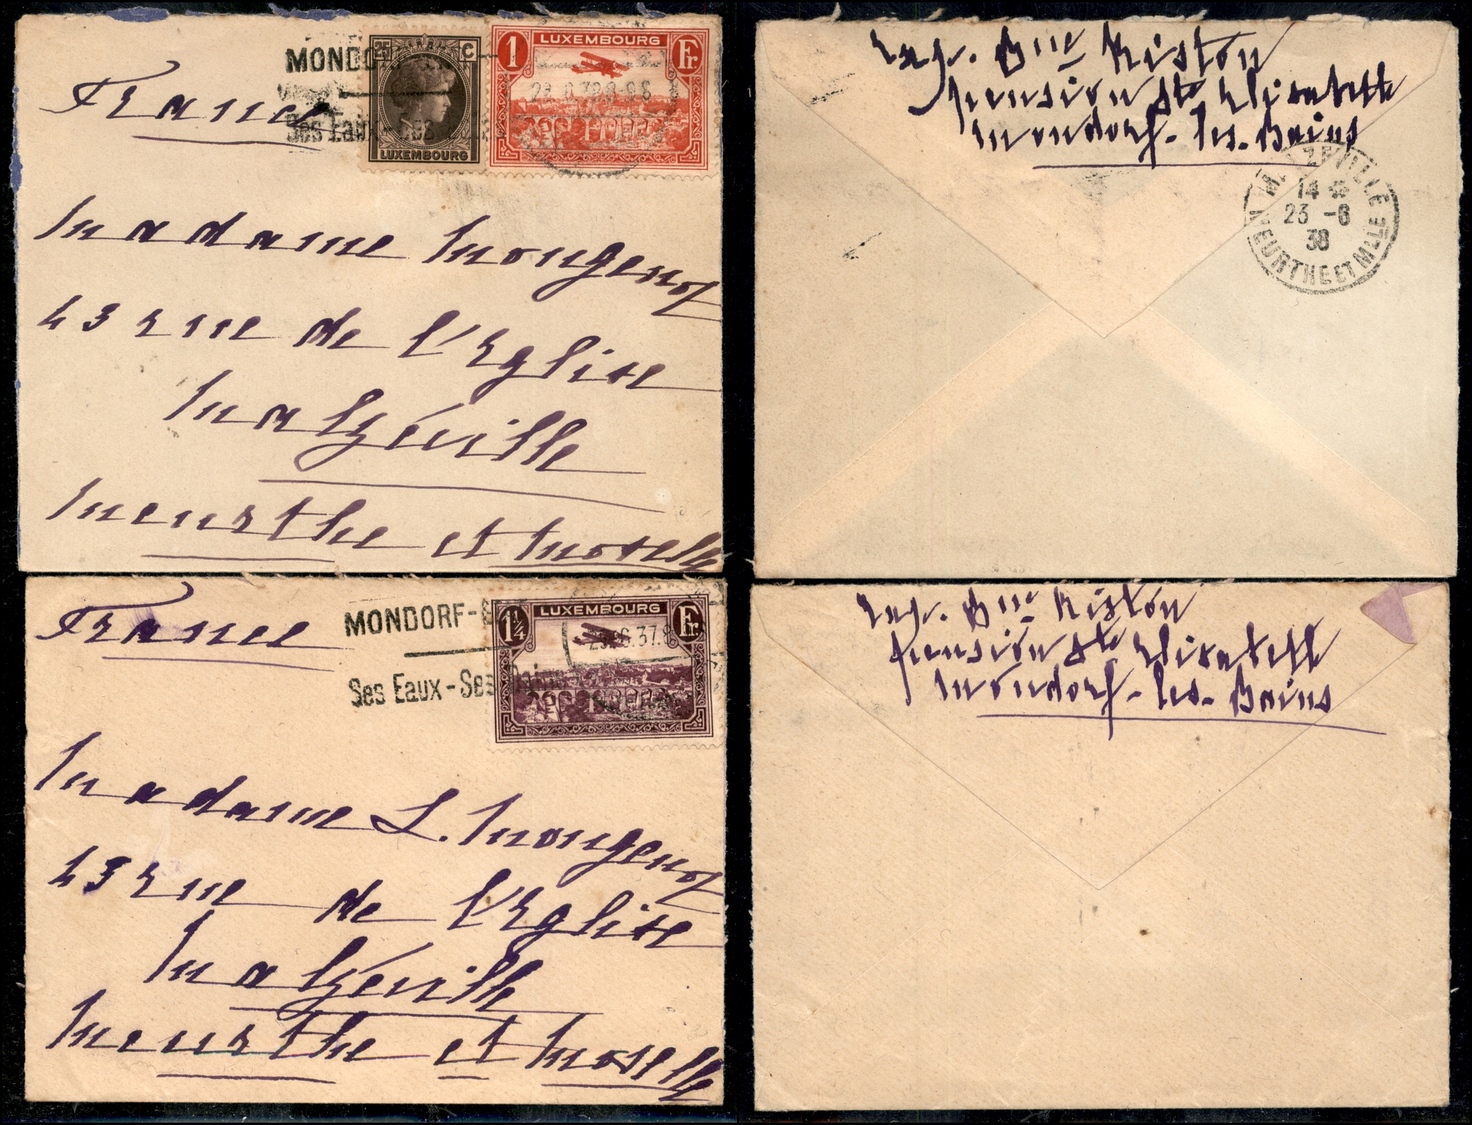 MONDO
Ses Eaux-Ses
25 C
LUXEMBOURG
1 LUXEMBOURG Fr.
France
Madame Mongenot
43 rue de l'Eglise
Malzéville
Meurthe et Moselle
Exp. Bnne Riston
Pension Ste Elisabeth
Mondorf-les-Bains
MALZEVILLE
14
23 -6
38
MEURTHE ET Mlle
MONDORF-
Ses Eaux-Ses
1 1/4 LUXEMBOURG Fr.
France
Madame L. Mongenot
43 rue de l'Eglise
Malzéville
Meurthe et Moselle
Exp. Bnne Riston
Pension Ste Elisabeth
Mondorf-les-Bains